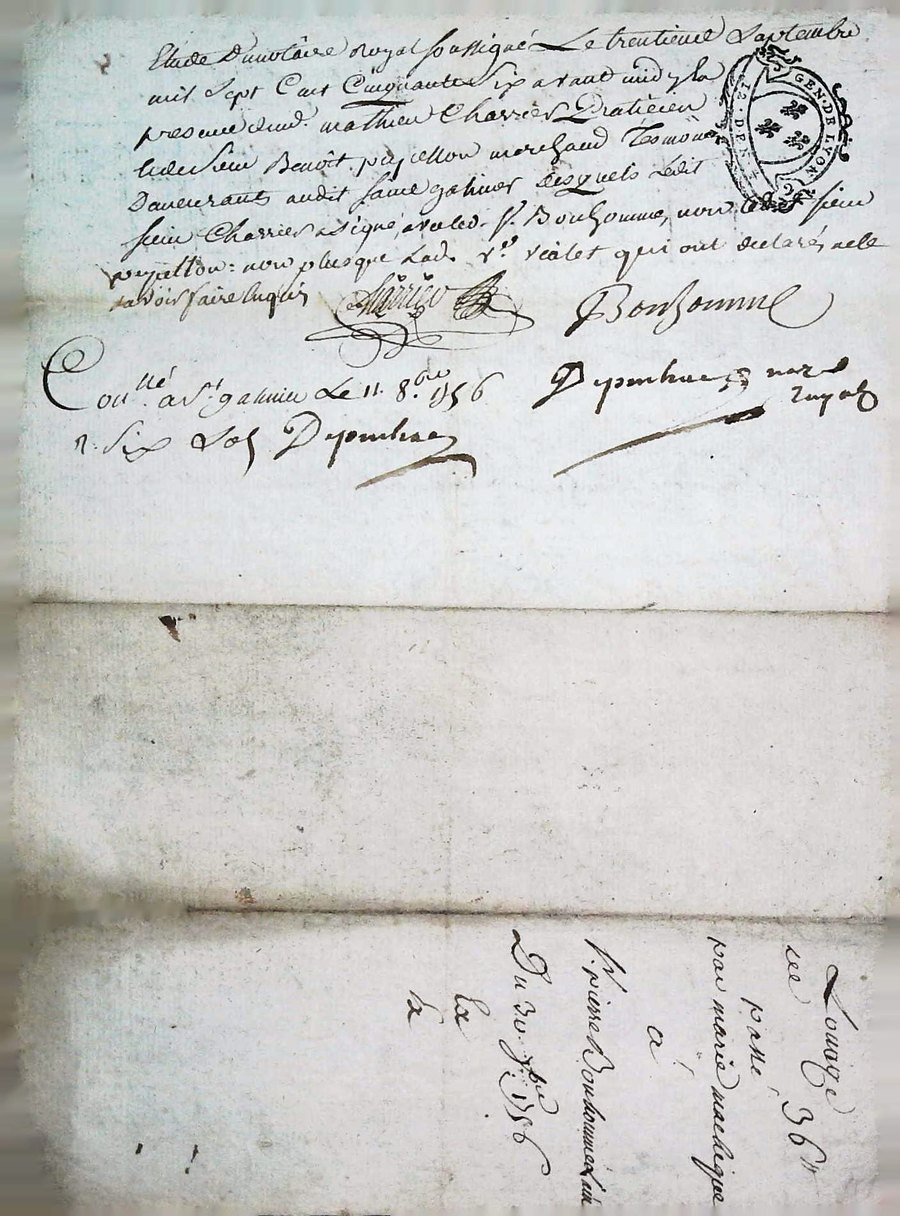 Etude Du notaire Royal soussigné Le trentieme Septembre
mil sept Cent Cinquante six avant midy En
presence de md. mathieu Charrier Praticien
& de sieur Benoît papillon marchand Tesmoins
Demeurants audit saint galmier Lesquels Ledit
sieur Charrier a signé, avec led. Sr. Bonhomme, non Ledit sieur
papillon: non plus que Lad. vialet qui ont declaré, ne le
savoir faire Enquis Charrier Bonhomme
Conllé. a St. galmier Le 11. 8.bre 1756
R. six sols
royal
GEN. DE LYON
12. DEN.
Louage
36tt
passé
par marie
a
Sr. pierre Bonhomme
Du 30 7.bre 1756
Ex